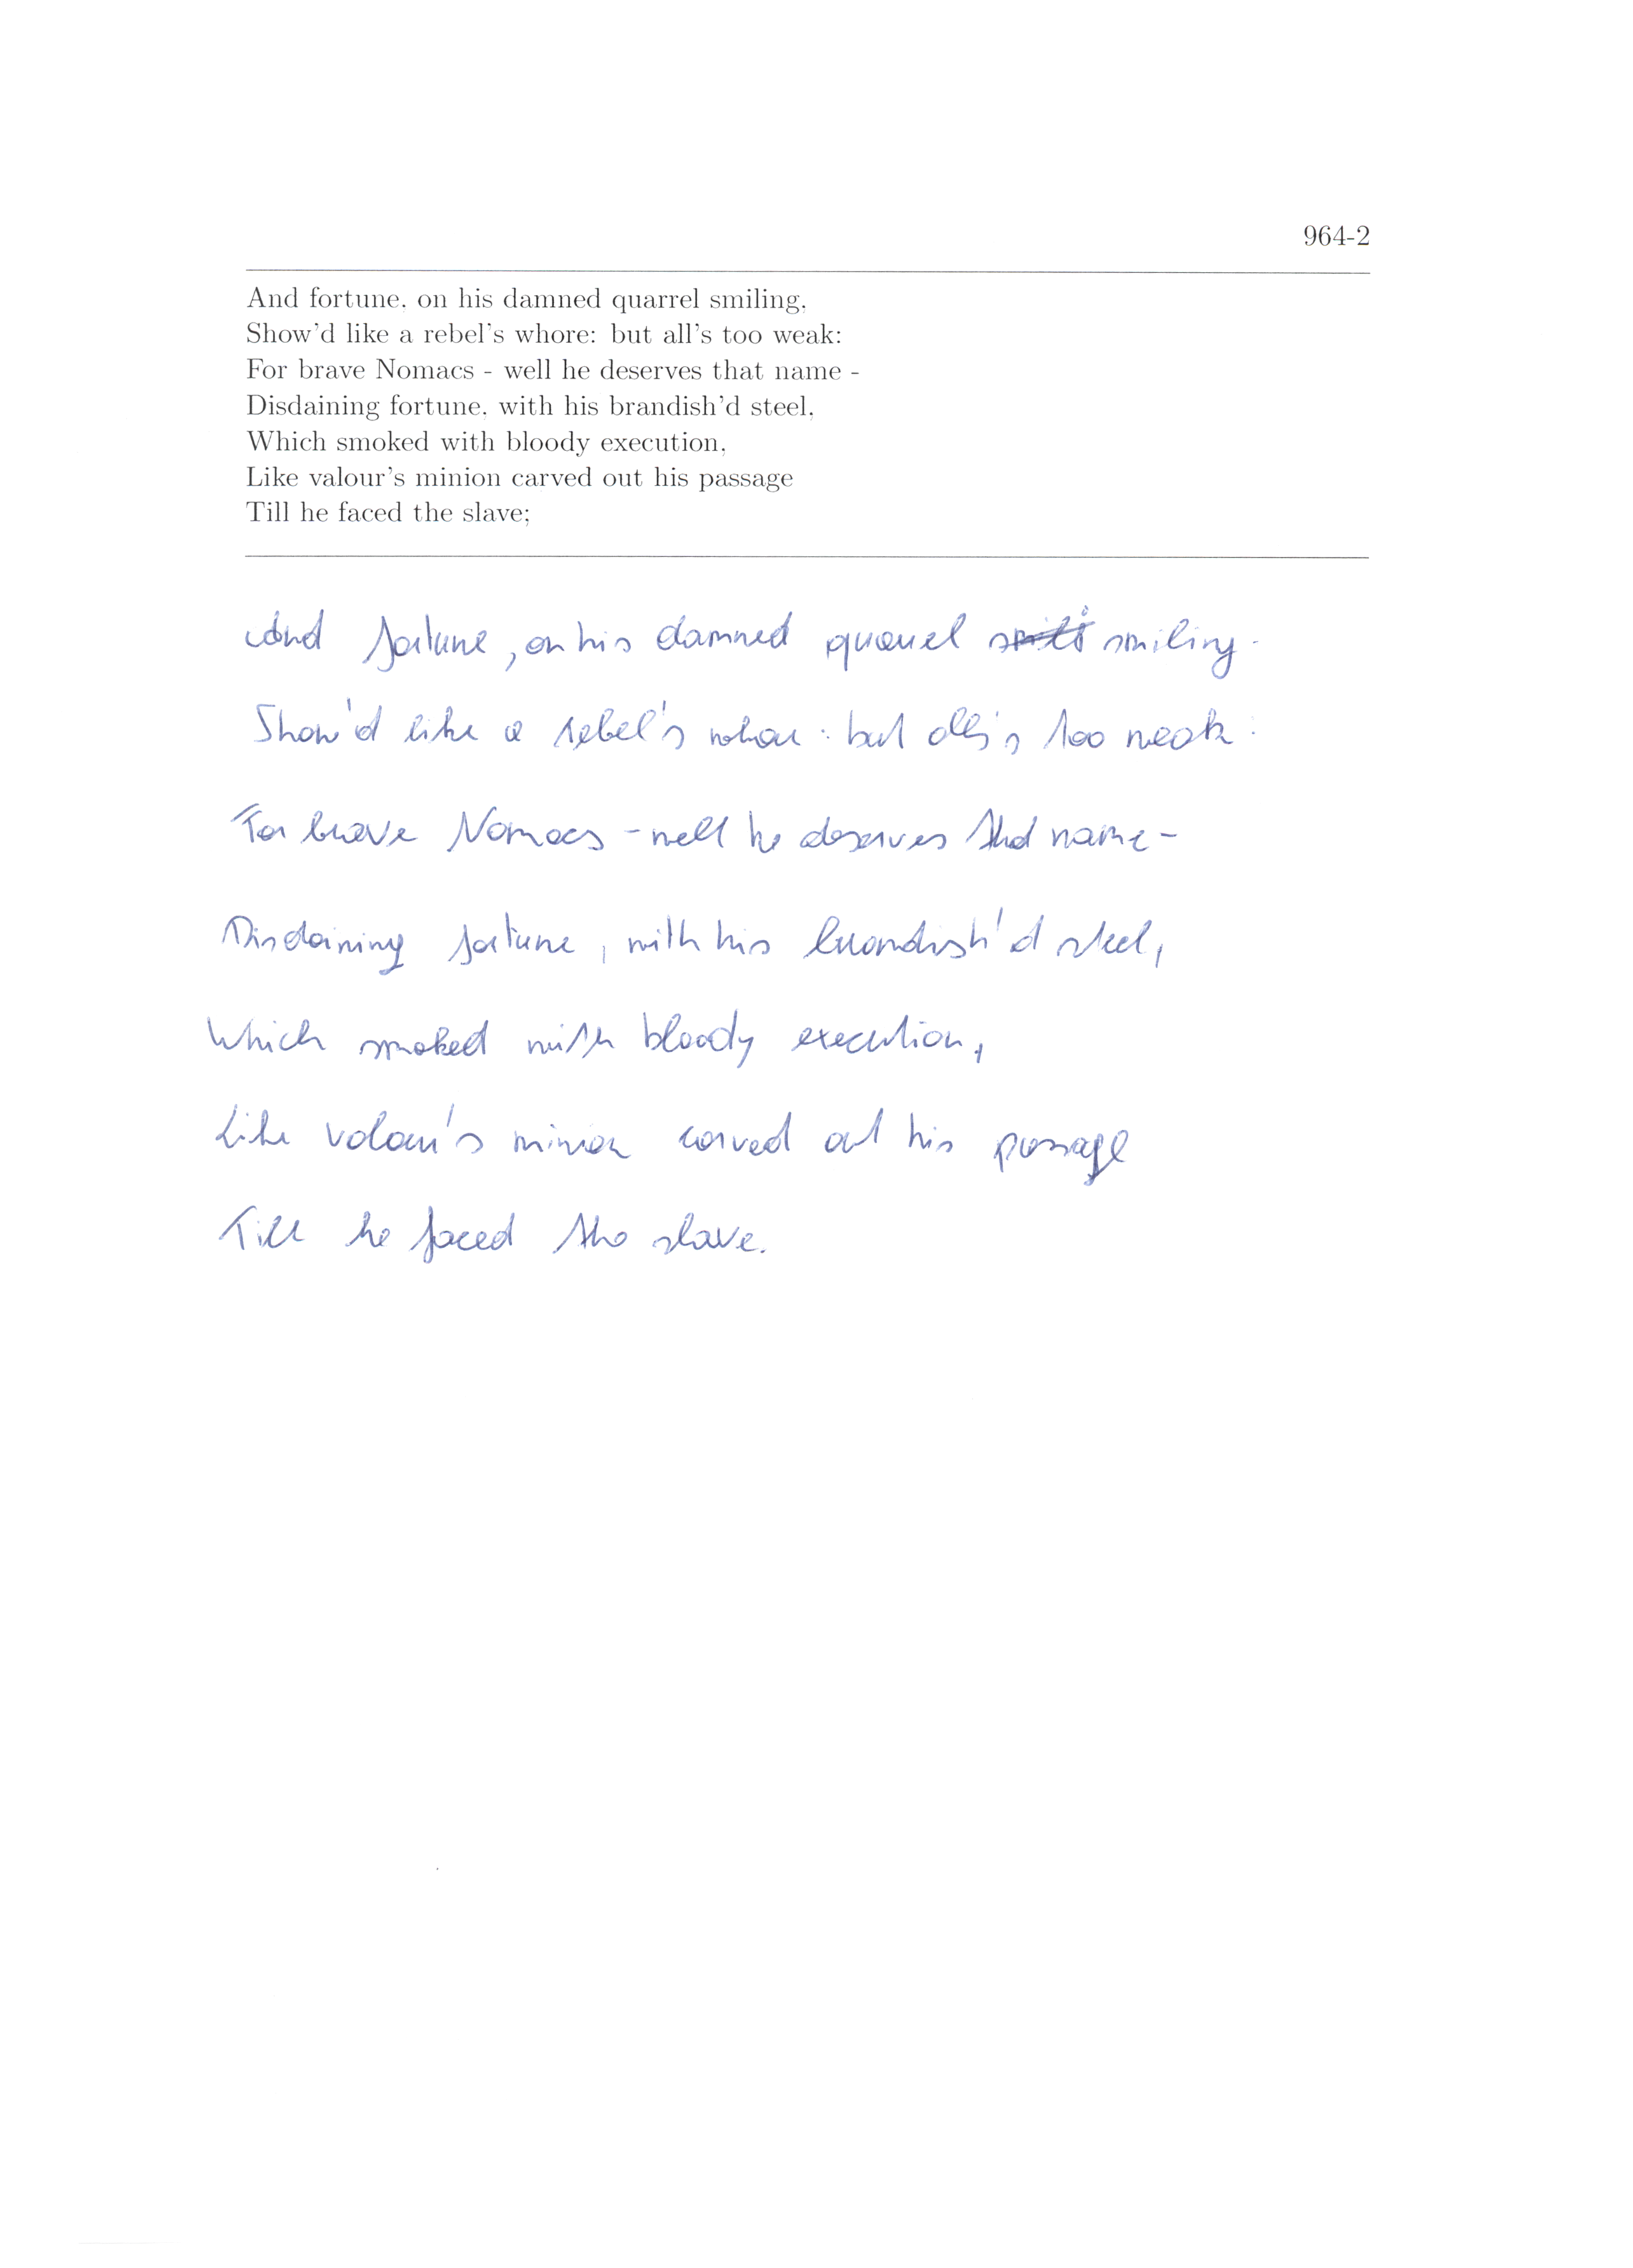 964-2
And fortune, on his damned quarrel smiling,
Show'd like a rebel's whore: but all's too weak:
For brave Nomacs - well he deserves that name -
Disdaining fortune, with his brandish'd steel,
Which smoked with bloody execution,
Like valour's minion carved out his passage
Till he faced the slave;
And fortune, on his damned quarrel smiling.
Show'd like a rebel's whore: but all's too weak:
For brave Nomacs - well he deserves that name -
Disdaining fortune, with his brandish'd steel,
Which smoked with bloody execution,
Like valour's minion carved out his passage
Till he faced the slave.